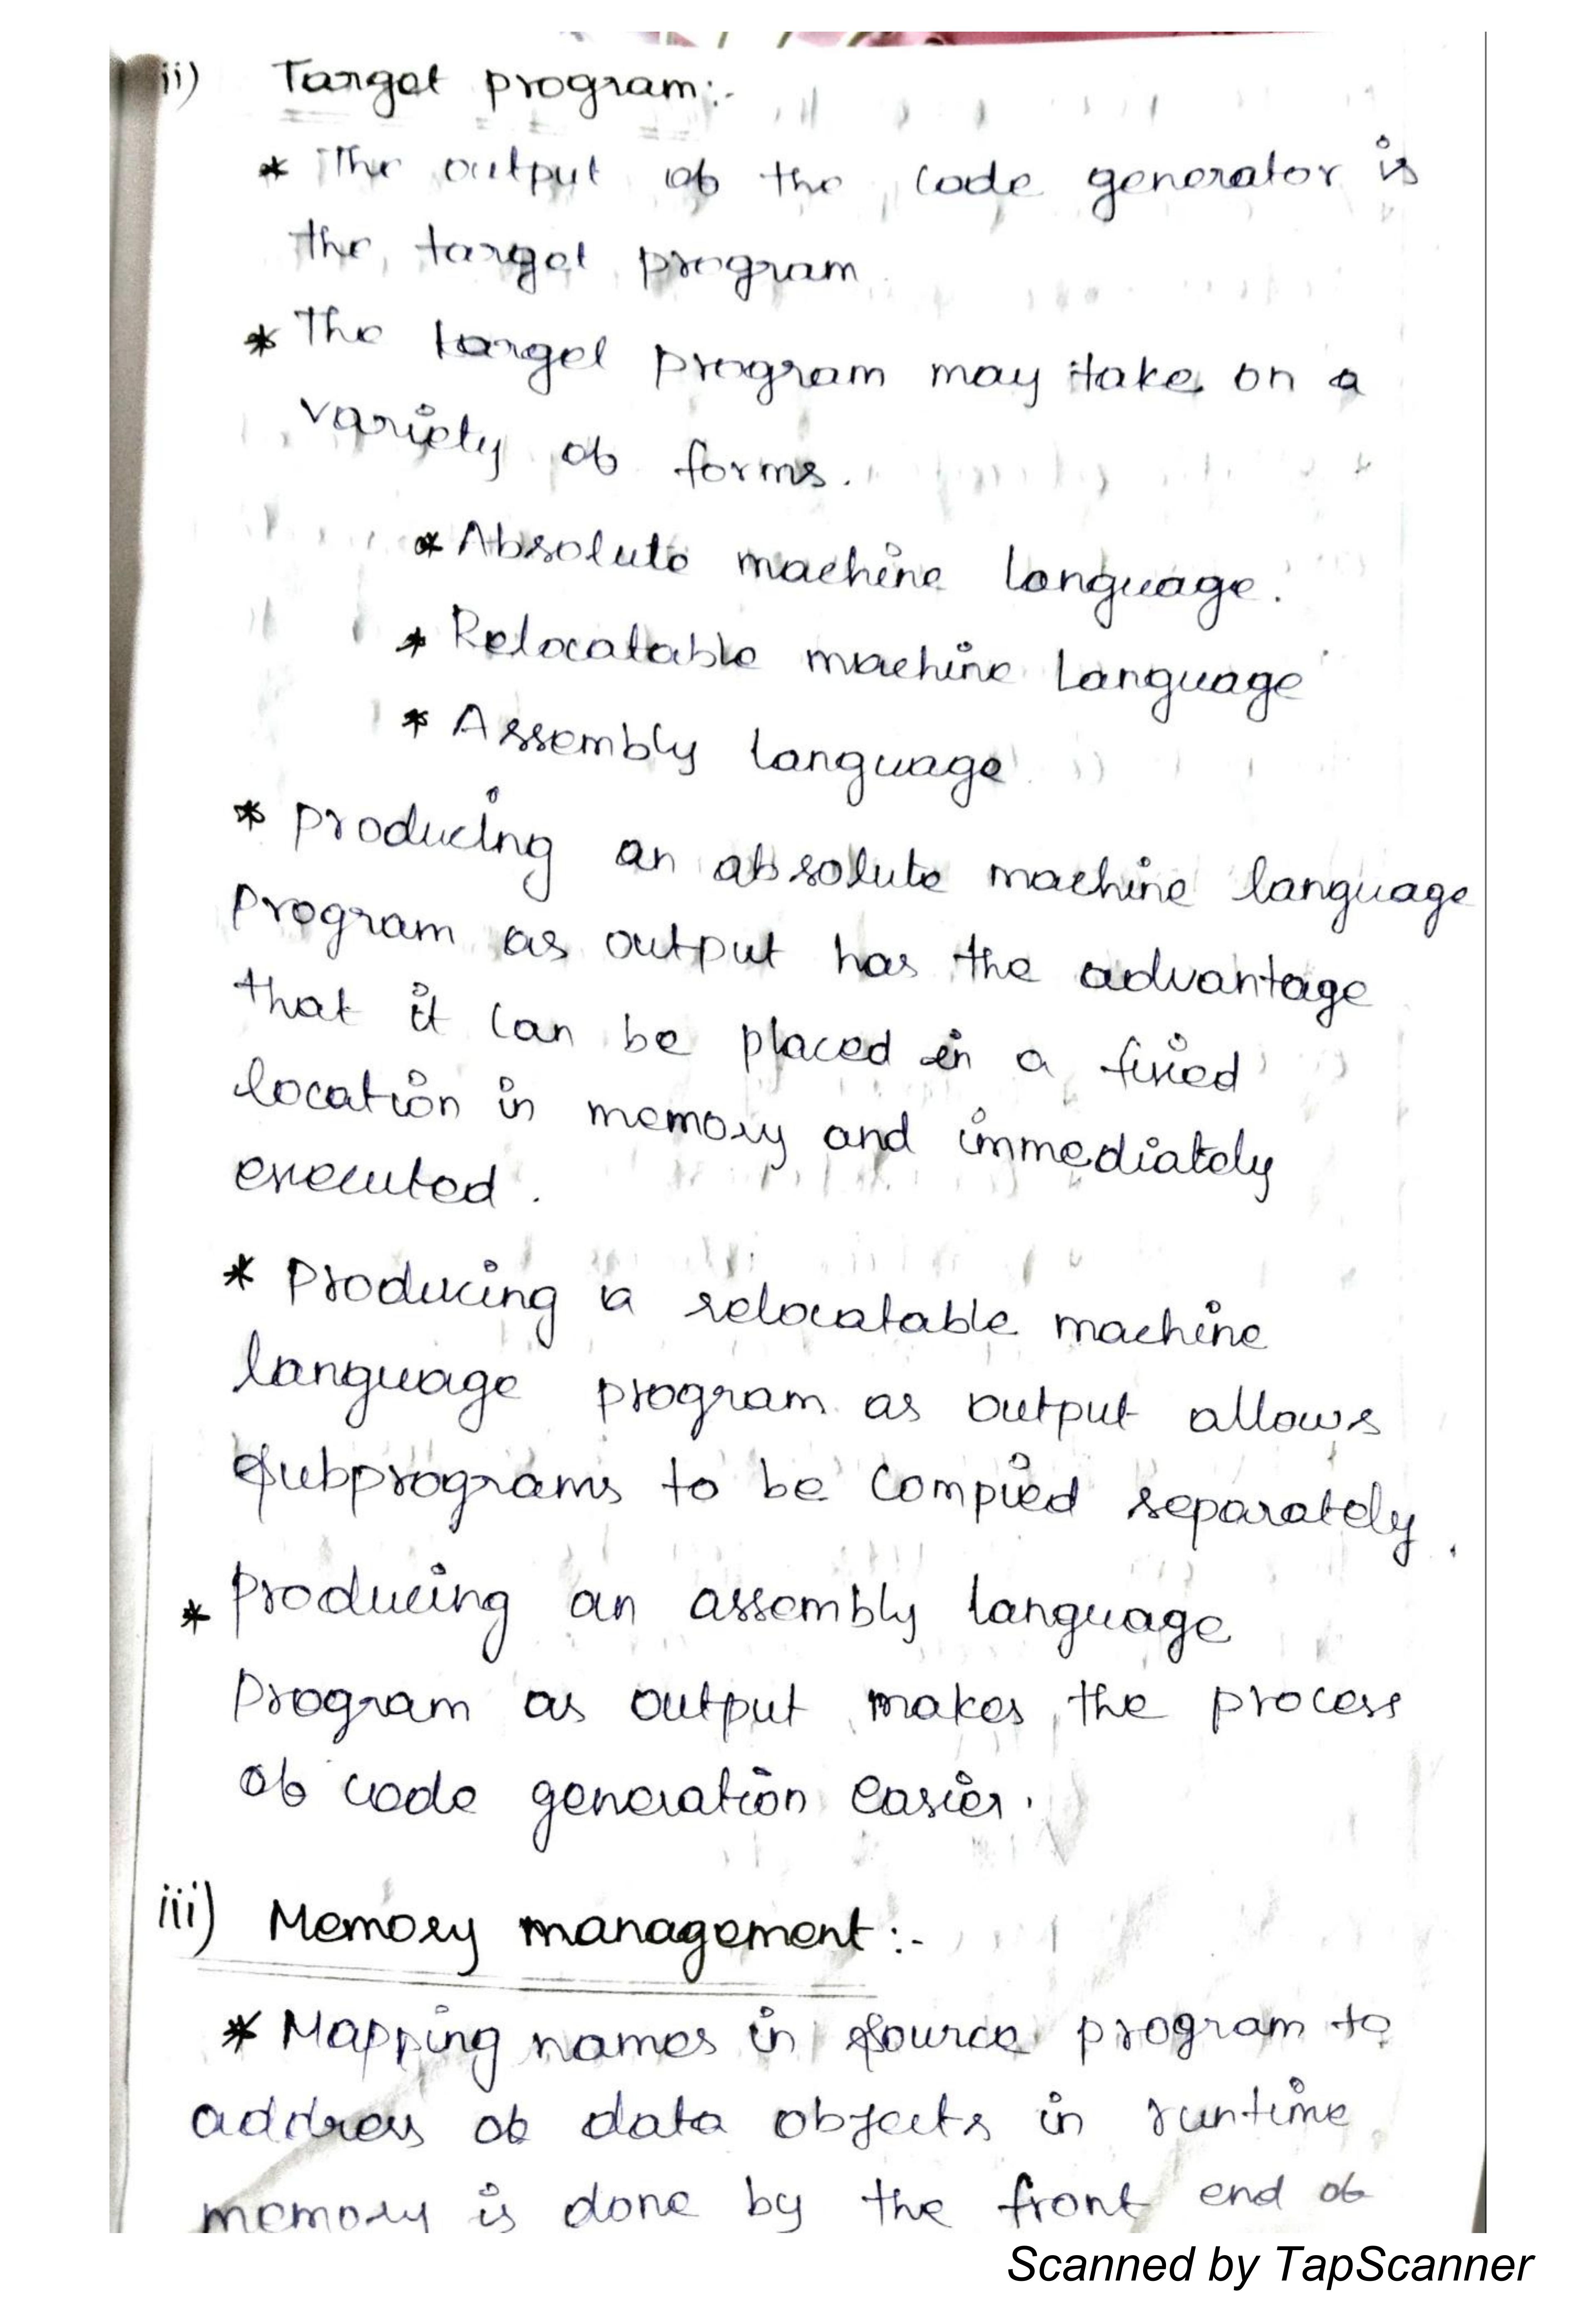 ii) Target program:-
* The output of the code generator is
the target program
* The target program may take on a
variety of forms.
* Absolute machine language.
* Relocatable machine Language
* Assembly language
* producing an absolute machine language
program as output has the advantage
that it can be placed in a fixed
location in memory and immediately
executed.
* Producing a relocatable machine
language program as output allows
subprograms to be compied separately.
* producing an assembly language
program as output makes the process
of code generation easier.
iii) Memory management:-
* Mapping names in source program to
address of data objects in runtime
memory is done by the front end of
Scanned by TapScanner